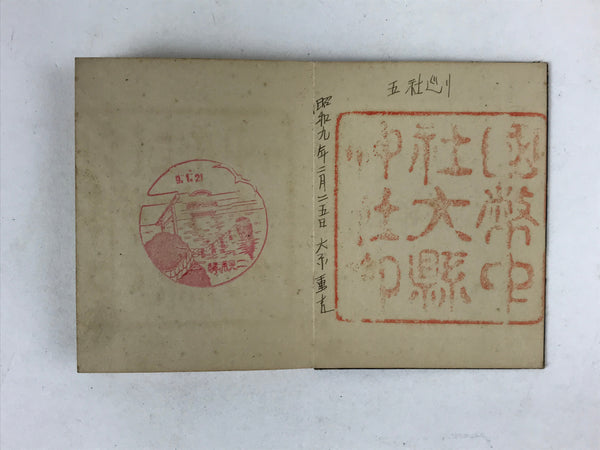 五社巡り
國幣中
社大縣
神社印
昭和九年二月二五日 大
9.1.21